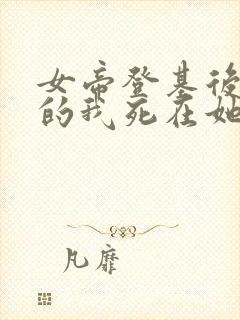 女帝登基後
的我死在她
凡靡